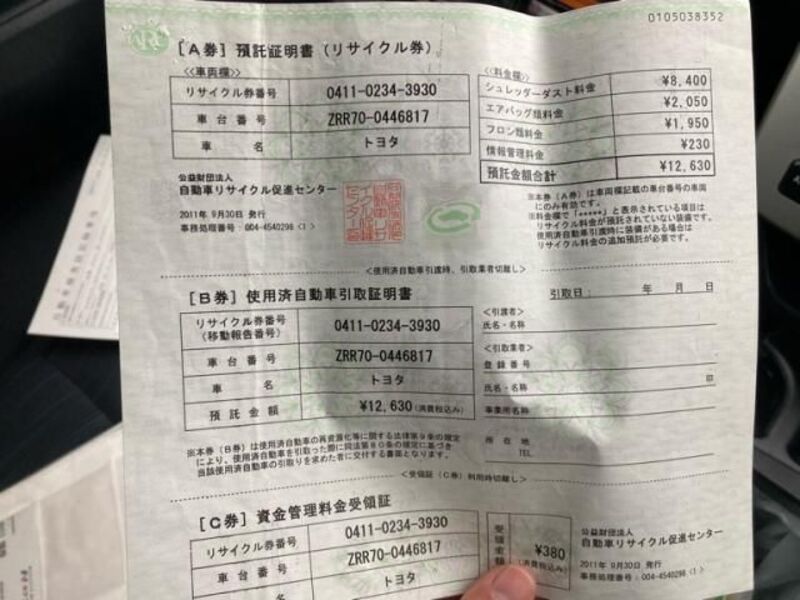 0105038352
[A券] 預託証明書 (リサイクル券)
≪車両欄≫
リサイクル券番号 0411-0234-3930
車台番号 ZRR70-0446817
車名 トヨタ
≪料金欄≫
シュレッダーダスト料金 ¥8,400
エアバッグ類料金 ¥2,050
フロン類料金 ¥1,950
情報管理料金 ¥230
預託金額合計 ¥12,630
公益財団法人
自動車リサイクル促進センター
2011年 9月30日 発行
事務処理番号：004-4540298〈1〉
※本券（A券）は車両欄記載の車台番号の車両
にのみ有効です。
※料金欄で「*****」と表示されている項目は
リサイクル料金が預託されていない装備です。
使用済自動車引渡時に装備がある場合は
リサイクル料金の追加預託が必要です。
<使用済自動車引渡時、引取業者切離し>
[B券] 使用済自動車引取証明書
引取日： 年 月 日
リサイクル券番号
(移動報告番号) 0411-0234-3930
車台番号 ZRR70-0446817
車名 トヨタ
預託金額 ¥12,630 (消費税込み)
<引渡者>
氏名・名称
<引取業者>
登録番号
氏名・名称 印
事業所名称
所在地
TEL
※本券（B券）は使用済自動車の再資源化等に関する法律第９条の規定
により、使用済自動車を引取った際に同法第８０条の規定に基づき
当該使用済自動車の引取りを求めた者に交付する書面となります。
<受領証（C券）利用時切離し>
[C券] 資金管理料金受領証
リサイクル券番号 0411-0234-3930
車台番号 ZRR70-0446817
車名 トヨタ
受領金額 ¥380
(消費税込み)
公益財団法人
自動車リサイクル促進センター
2011年 9月30日 発行
事務処理番号：004-4540298〈1〉